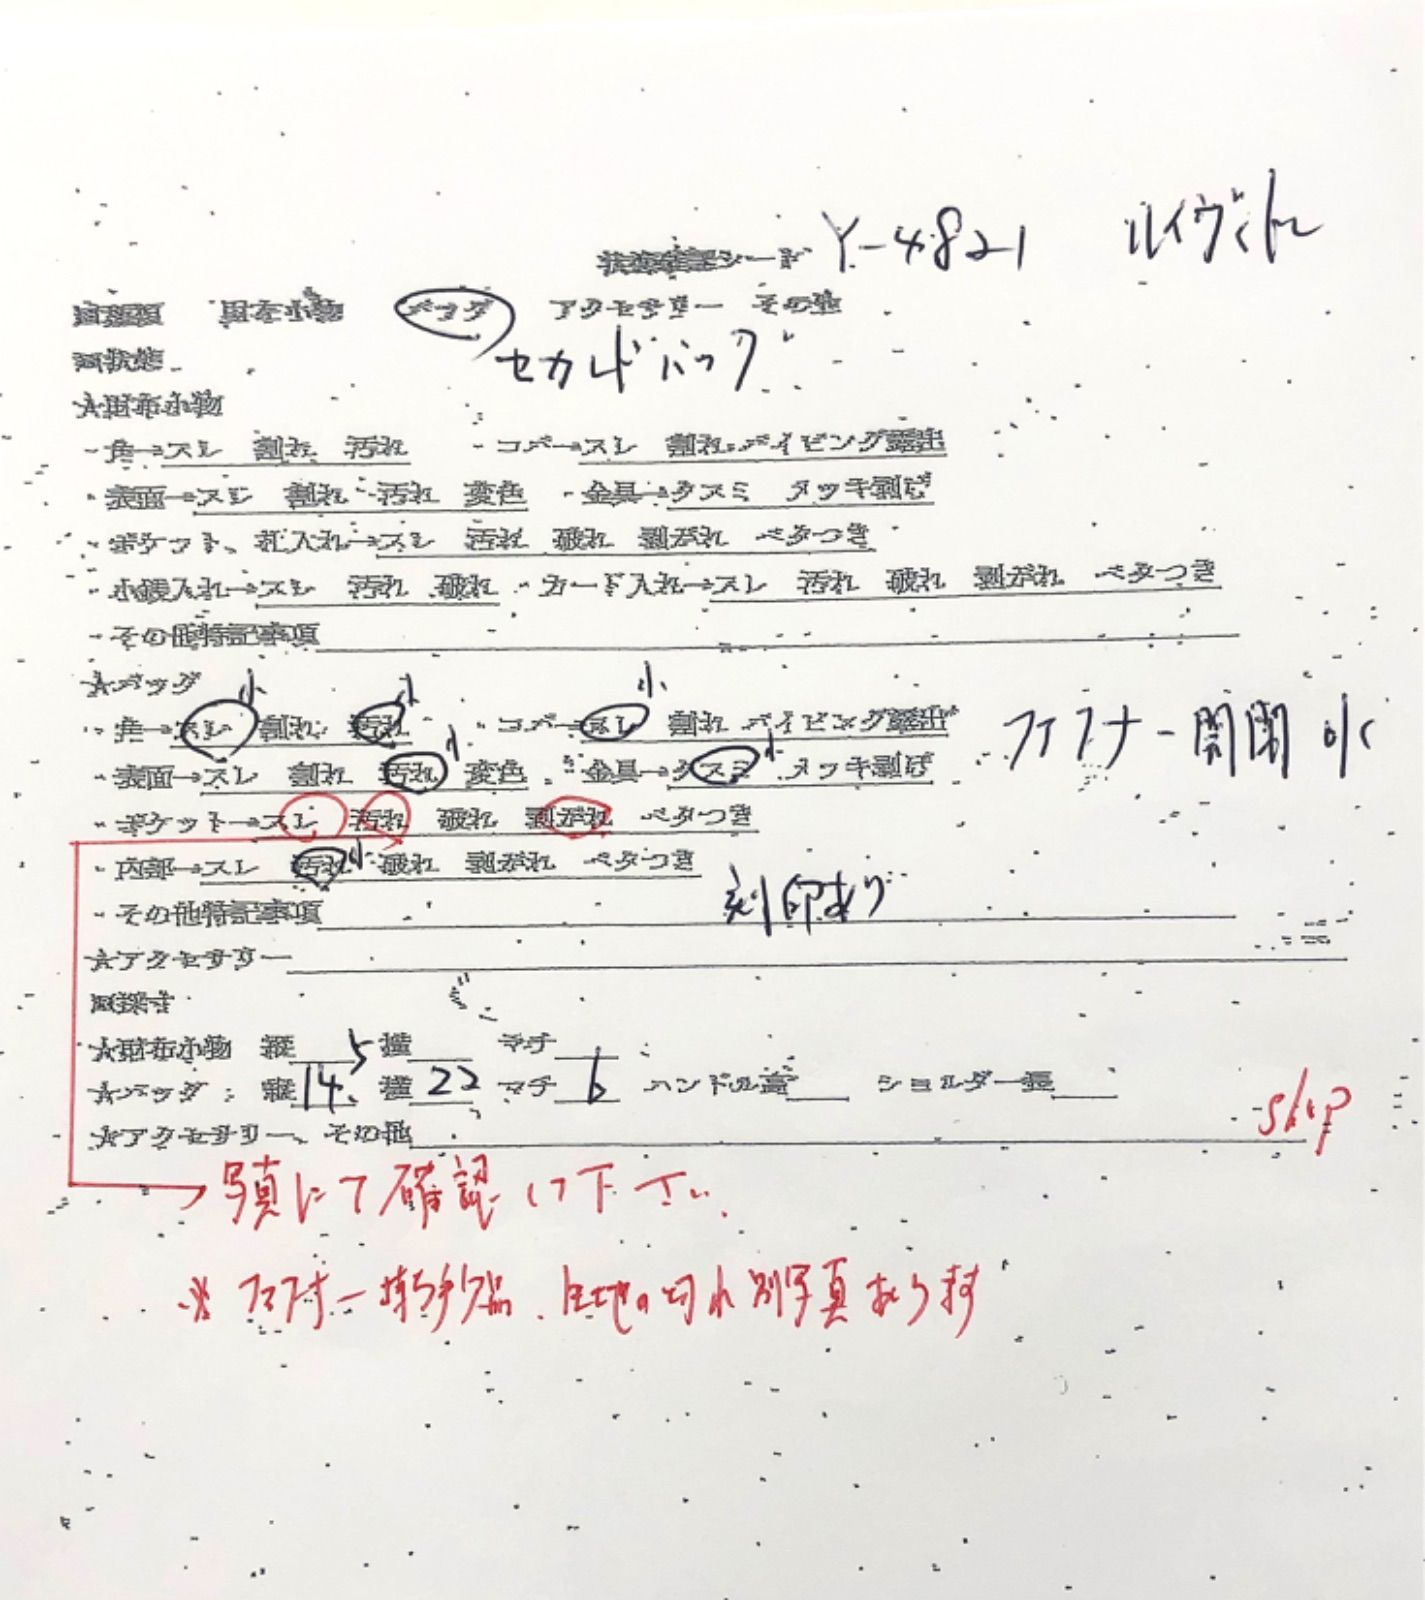 状態確認シート Y-4821 ルイヴィトン
□種類 財布小物 バッグ アクセサリー その他
セカンドバッグ
□状態
★財布小物
・角→スレ 割れ 汚れ ・コバ→スレ 割れ パイピング露出
・表面→スレ 割れ 汚れ 変色 ・金具→クスミ メッキ剥げ
・ポケット、札入れ→スレ 汚れ 破れ 剥がれ ベタつき
・小銭入れ→スレ 汚れ 破れ ・カード入れ→スレ 汚れ 破れ 剥がれ ベタつき
・その他特記事項
★バッグ
・角→スレ 小 割れ 汚れ 小 ・コバ→スレ 小 割れ パイピング露出
ファスナー開閉 OK
・表面→スレ 割れ 汚れ 小 変色 ・金具→クスミ 小 メッキ剥げ
・ポケット→スレ 汚れ 破れ 剥がれ ベタつき
・内部→スレ 汚れ 小 破れ 剥がれ ベタつき
・その他特記事項 刻印あり
★アクセサリー
□採寸
★財布小物 縦 横 マチ
★バッグ 縦 14.5 横 22 マチ 6 ハンドル高 ショルダー長
★アクセサリー、その他
写真にて確認して下さい.
※ ファスナー持ち手欠品、生地の切れ別写真あります